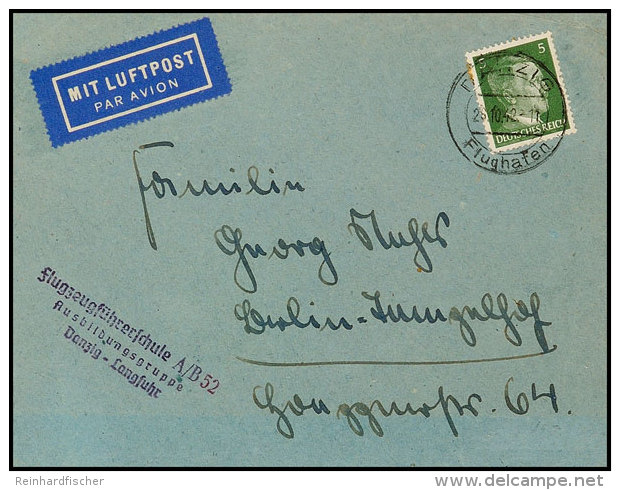 MIT LUFTPOST
PAR AVION
5
5
DEUTSCHES REICH
DANZIG
25.10.42
Flughafen
Familie
Georg
Berlin-Tempelhof
64.
Flugzeugführerschule A/B 52
Ausbildungsgruppe
Danzig-Langfuhr
Reinhardfischer
delcampe.net